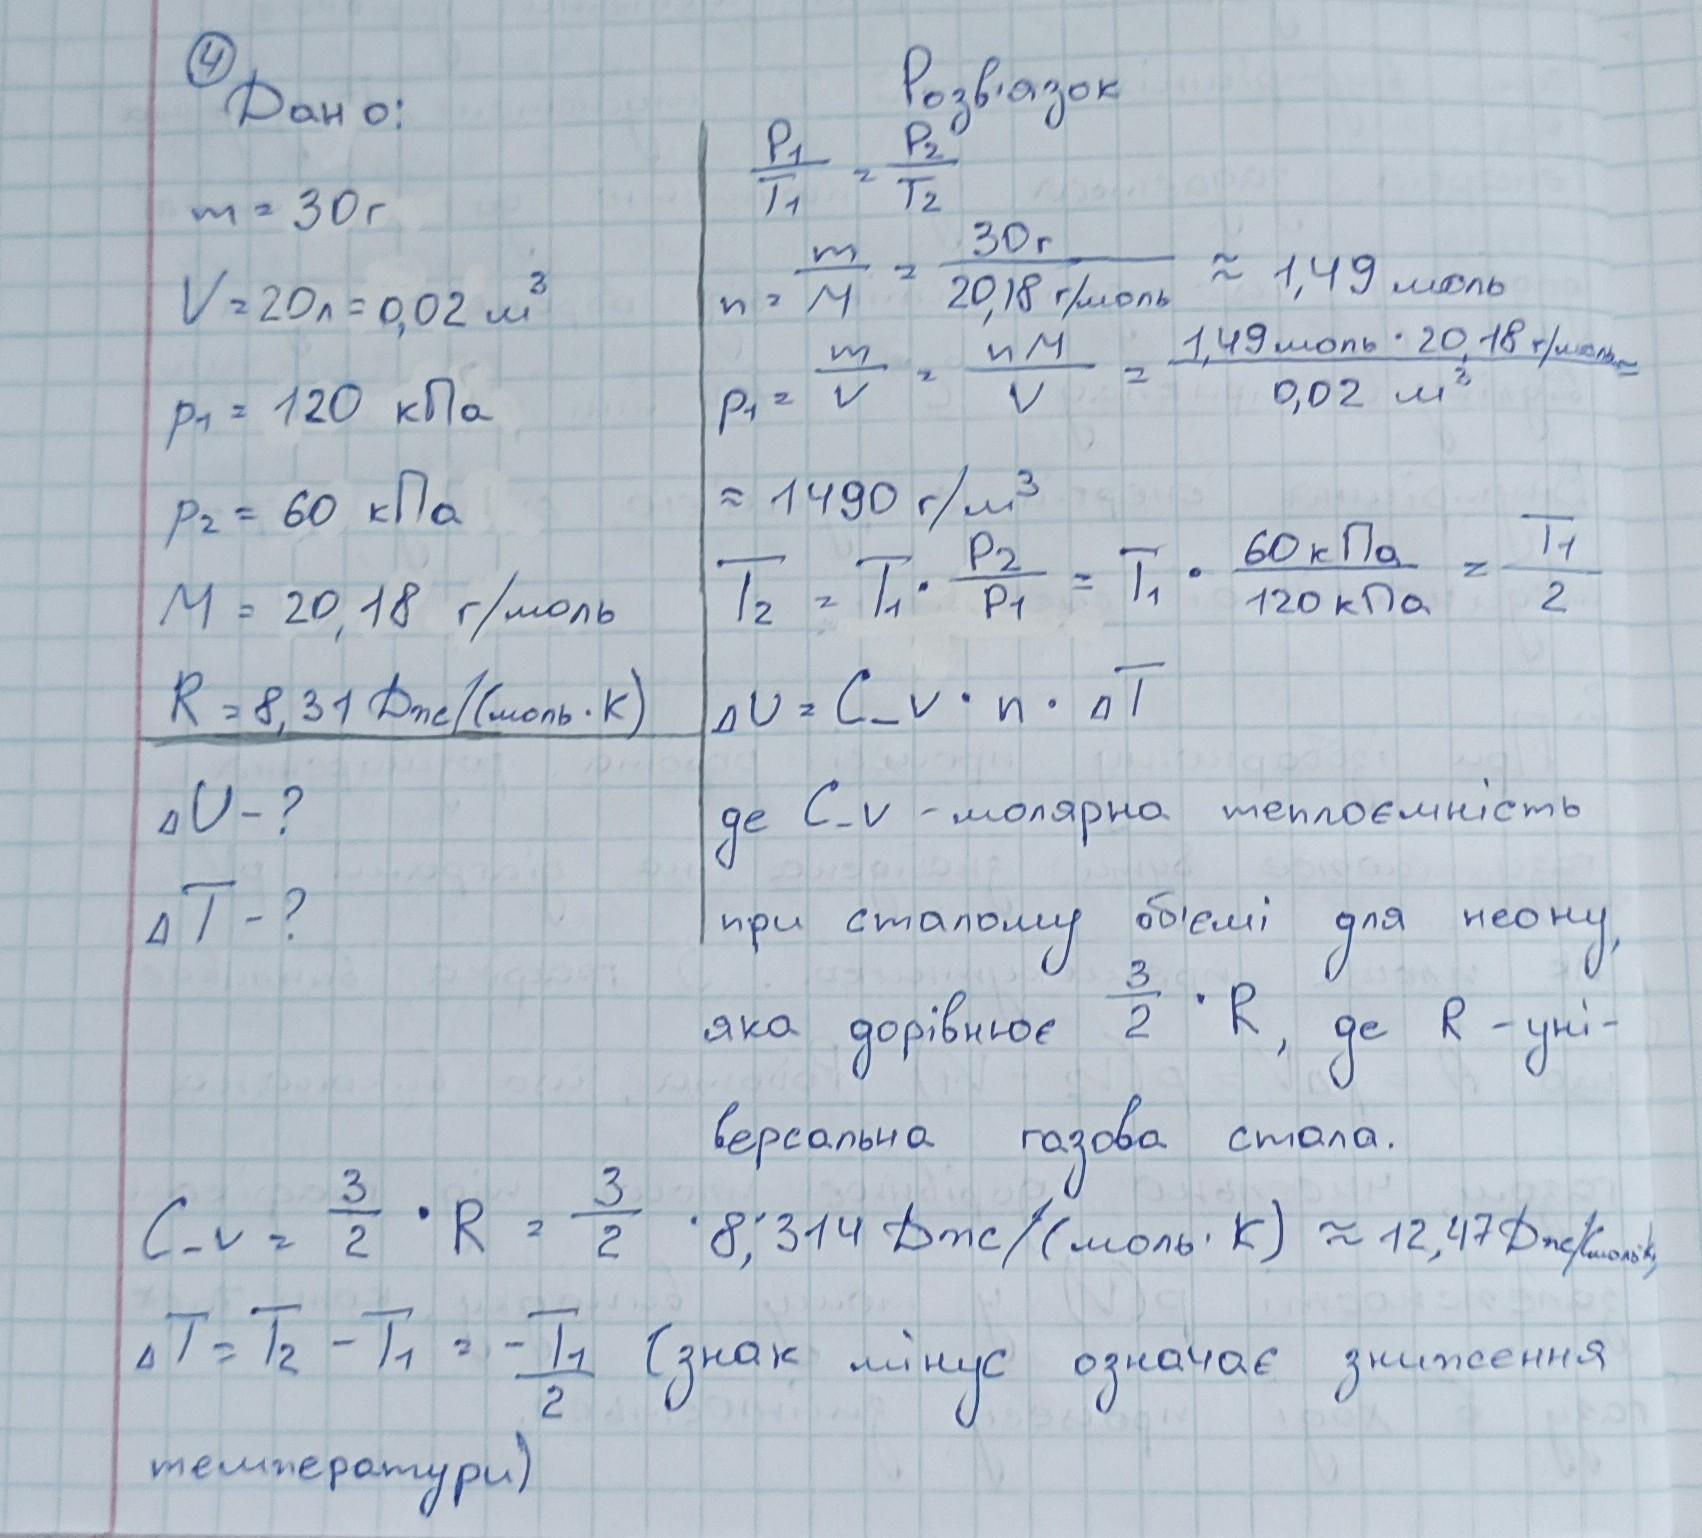 4
Дано:
m = 30г
V = 20л = 0,02 м³
p₁ = 120 кПа
p₂ = 60 кПа
M = 20,18 г/моль
R = 8,31 Дж/(моль·К)
ΔU - ?
ΔT - ?
Розв'язок
P₁/T₁ = P₂/T₂
n = m/M = 30г/20,18 г/моль ≈ 1,49 моль
p₁ = m/V = nM/V = 1,49моль · 20,18 г/моль/0,02 м³ ≈
≈ 1490 г/м³
T₂ = T₁ · P₂/P₁ = T₁ · 60кПа/120кПа = T₁/2
ΔU = C_v · n · ΔT
де C_v - молярна теплоємність
при сталому об'ємі для неону,
яка дорівнює 3/2 · R, де R - уні-
версальна газова стала.
C_v = 3/2 · R = 3/2 · 8,314 Дж/(моль·К) ≈ 12,47Дж/(моль·К)
ΔT = T₂ - T₁ = -T₁/2 (знак мінус означає зниження
температури)